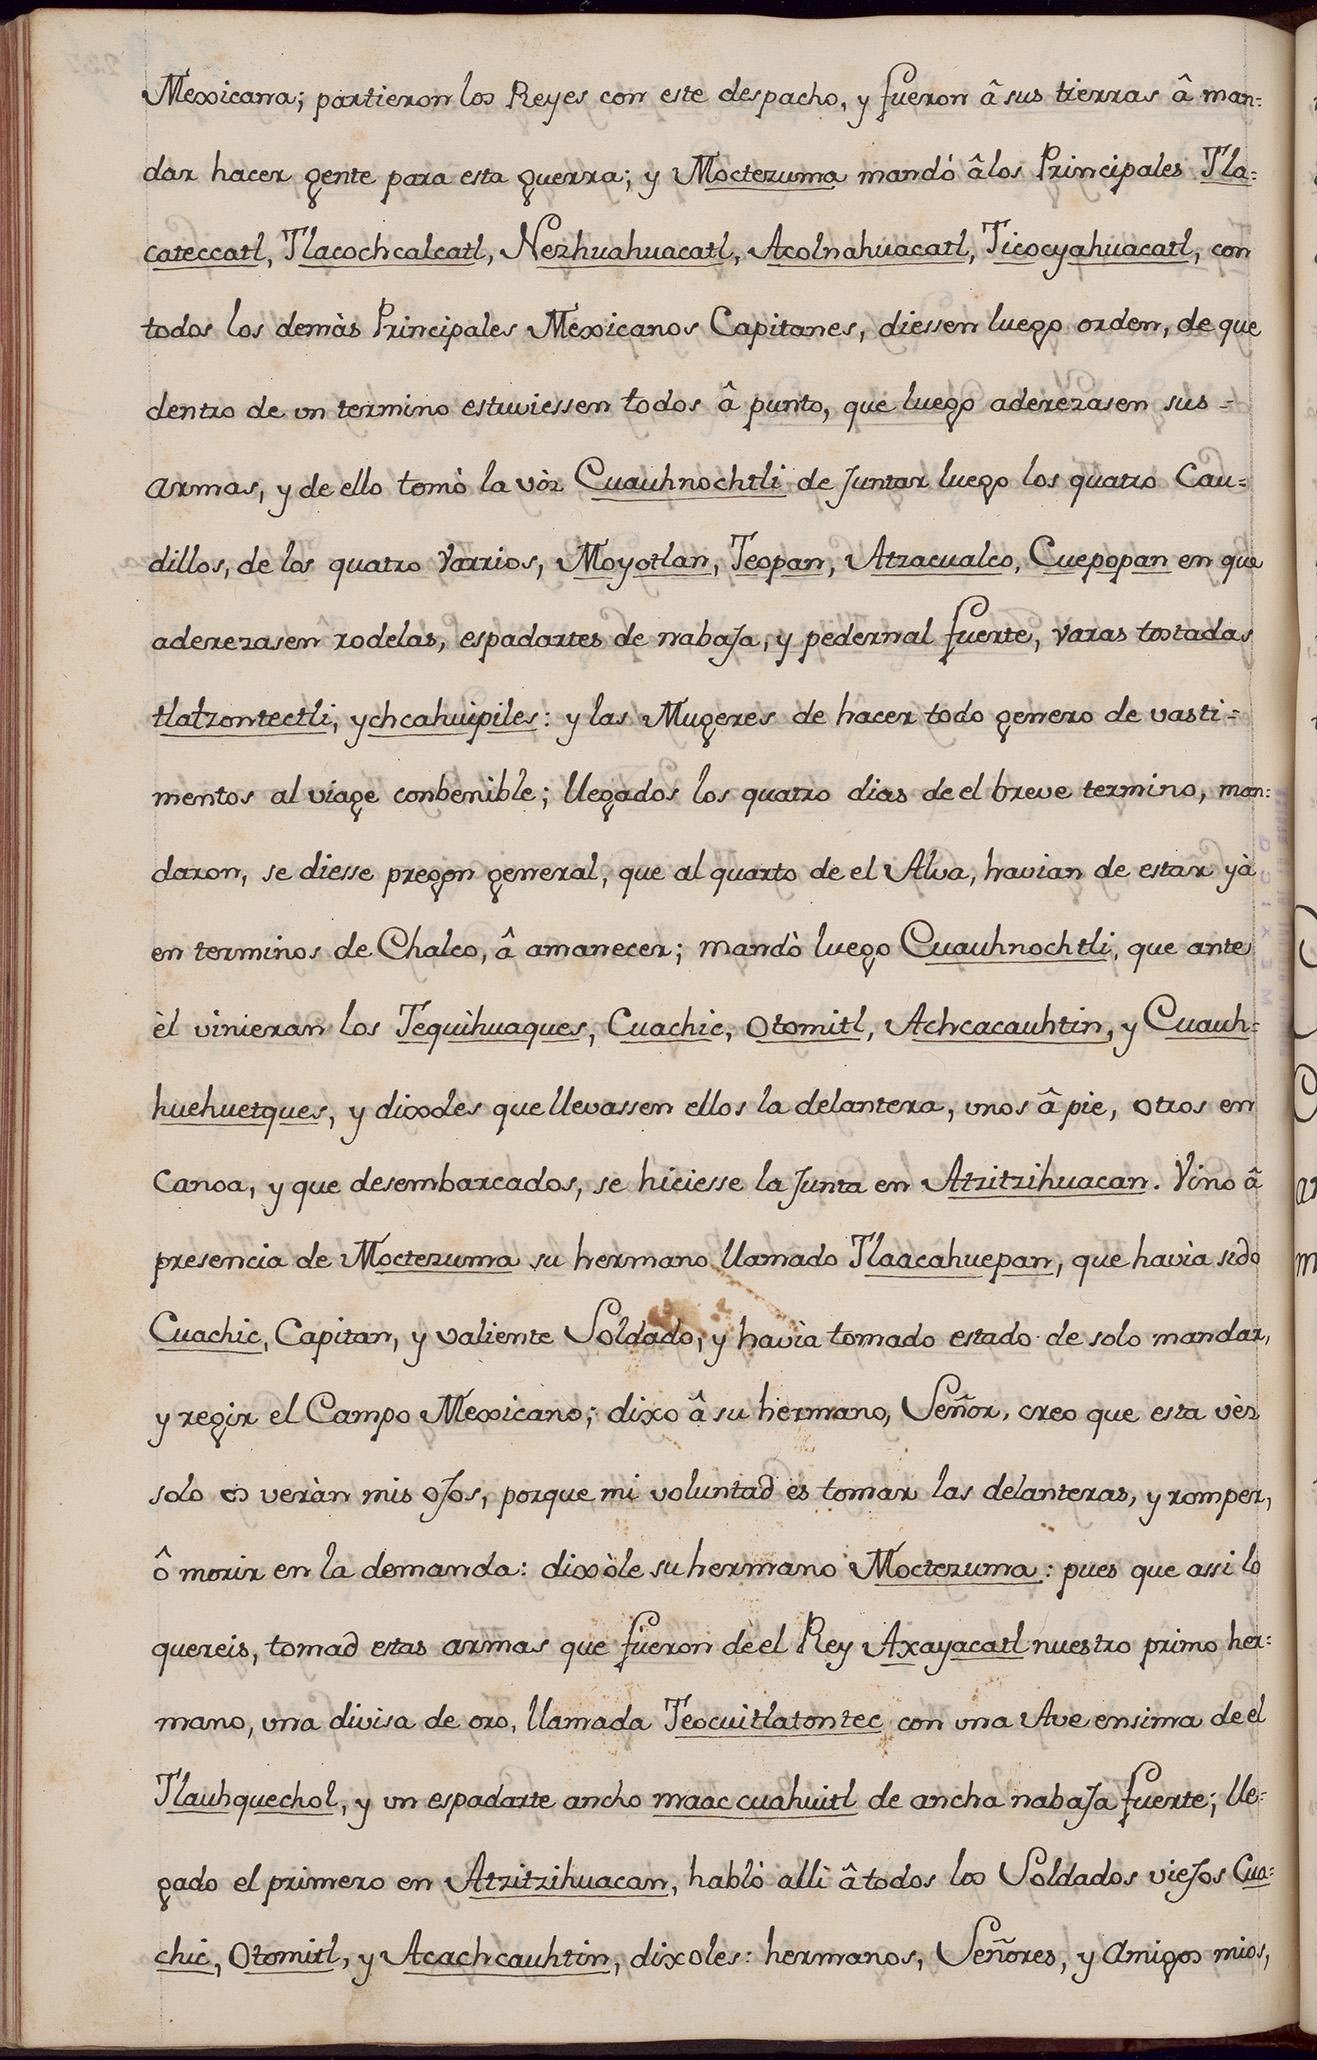 Mexicana; partieron los Reyes con este despacho, y fueron â sus tierras â man=
dar hacer gente para esta guerra; y Moctezuma mandó âlos Principales Tla=
cateccatl, Tlacochcalcatl, Nezhuahuacatl, Acolnahuacatl, Ticocyahuacatl, con
todos los demàs Principales Mexicanos Capitanes, diessen luego orden, de que
dentro de vn termino estuviessen todos â punto, que luego aderezasen sus =
armas, y de ello tomò la vòz Cuauhnochtli de Juntar luego los quatro Cau=
dillos, de los quatro Varrios, Moyotlan, Teopan, Atzacualco, Cuepopan en que
aderezasen rodelas, espadartes de nabaJa, y pedernal fuerte, varas tostadas
tlatzontectli, ychcahuipiles: y las Mugeres de hacer todo genero de vasti=
mentos al viage conbenible; llegados los quatro dias de el breve termino, man=
daron, se diesse pregon general, que al quarto de el Alva, havian de estar yà
en terminos de Chalco, â amanecer; mandò luego Cuauhnochtli, que ante
èl vinieran los Tequihuaques, Cuachic, Otomitl, Achcacauhtin, y Cuauh=
huehuetques, y dixoles que llevassen ellos la delantera, vnos â pie, otros en
canoa, y que desembarcados, se hiciesse la Junta en Atzitzihuacan. Vino â
presencia de Moctezuma su hermano llamado Tlaacahuepan, que havia sido
Cuachic, Capitan, y valiente Soldado, y havia tomado estado de solo mandar,
y regir el Campo Mexicano; dixo â su hermano, Señor, creo que esta vèz
solo os veràn mis oJos, porque mi voluntad es tomar las delanteras, y romper,
ô morir en la demanda: dixòle su hermano Moctezuma: pues que assi lo
quereis, tomad estas armas que fueron de el Rey Axayacatl nuestro primo her=
mano, vna divisa de oro, llamada Teocuitlatontec con vna Ave ensima de el
Tlauhquechol, y vn espadarte ancho maac cuahuitl de ancha nabaJa fuerte; lle=
gado el primero en Atzitzihuacan, hablò alli â todos los Soldados vieJos Cua=
chic, Otomitl, y Acachcauhtin, dixoles: hermanos, Señores, y amigos mios,